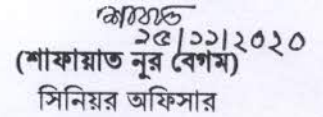 ২৫/১১/২০২০
(শাফায়াত নূর বেগম)
সিনিয়র অফিসার